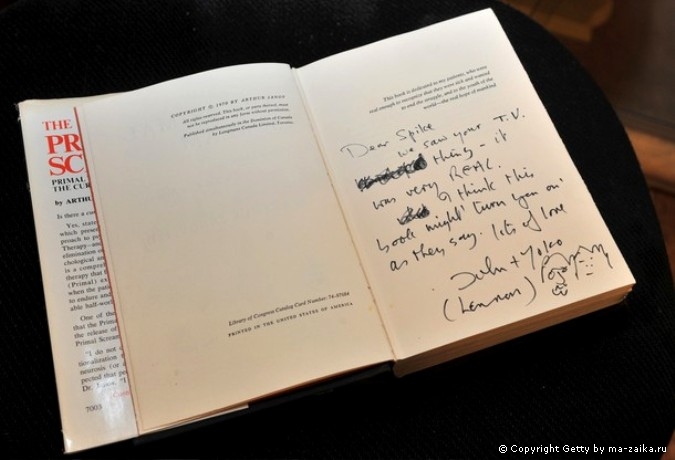 THE
PR
SC
PRIMAL
THE CUR
by ARTHU
Is there a co
Yes, state
which presen
proach to p
Therapy—and
elimination o
chological an
is a compre
therapy that
(Primal) ex
when the pati
to endure and
able half-wor
One of the
that the Prim
the release of
Primal Scream
"I do not
tionalization
neurosis (or a
pected that pe
Dr. "I
7003
COPYRIGHT © 1970 BY ARTHUR JANOV
All rights reserved. This book, or parts thereof, must
not be reproduced in any form without permission.
Published simultaneously in the Dominion of Canada
by Longmans Canada Limited, Toronto.
Library of Congress Catalog Card Number:
PRINTED IN THE UNITED STATES OF AMERICA
This book is dedicated to my patients, who were
real enough to recognize that they were sick and wanted
to end the struggle, and to the youth of the
world—the real hope of mankind
Dear Spike
we saw your T.V.
thing – it
was very REAL.
I think this
book might 'turn you on'
as they say. lots of love
John + Yoko
(Lennon)
© Copyright Getty by ma-zaika.ru